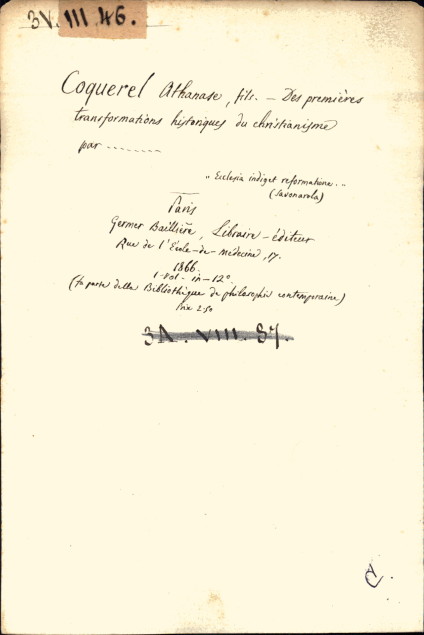 3V. III 46.
Coquerel Athanase, fils. — Des premières
transformations historiques du christianisme
par ........
"Ecclesia indiget reformatione."
(Savonarola)
Paris
Germer Baillière, Libraire-éditeur
Rue de l'École-de-Médecine, 17.
1866.
1-vol. in-12º.
(fa parte della Bibliothèque de philosophie contemporaine)
Prix 2.50
3A. VIII. 87.